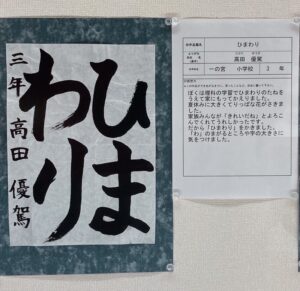 ひま
わり
三年 高田 優駕
ひまわり
高田 優駕
一の宮 小学校 3 年
ぼくは理科の学習でひまわりのたねを
うえて家にもってかえりました。
夏休みに大きくてりっぱな花がさきま
した。
家族みんなが「きれいだね」とよろこ
んでくれてうれしかったです。
だから「ひまわり」をかきました。
「わ」のまがるところや字の大きさに
気をつけました。